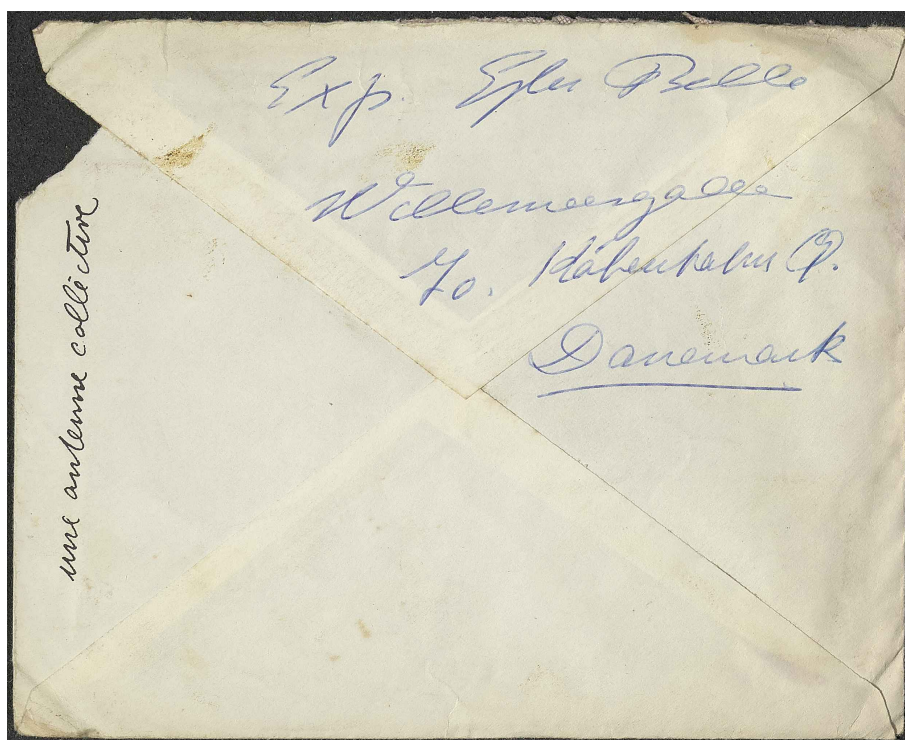 Exp. Ejler Bille
Willemoesgade
70. København Ø.
Danemark
une antenne collective